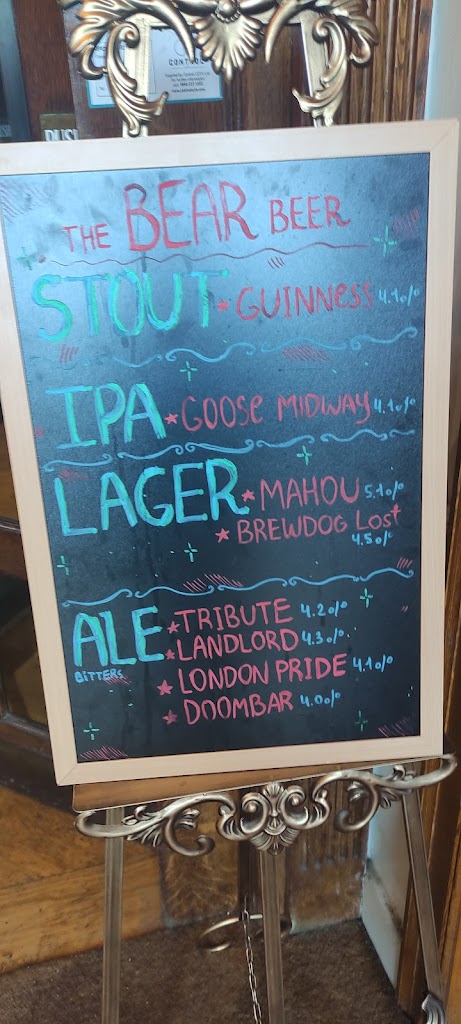 CONTROL
PUSH
THE BEAR BEER
STOUT * GUINNESS 4.1%
IPA * GOOSE MIDWAY 4.1%
LAGER * MAHOU 5.1%
* BREWDOG LOST
4.5%
ALE * TRIBUTE 4.2%
BITTERS * LANDLORD 4.3%
* LONDON PRIDE 4.1%
* DOOMBAR 4.0%